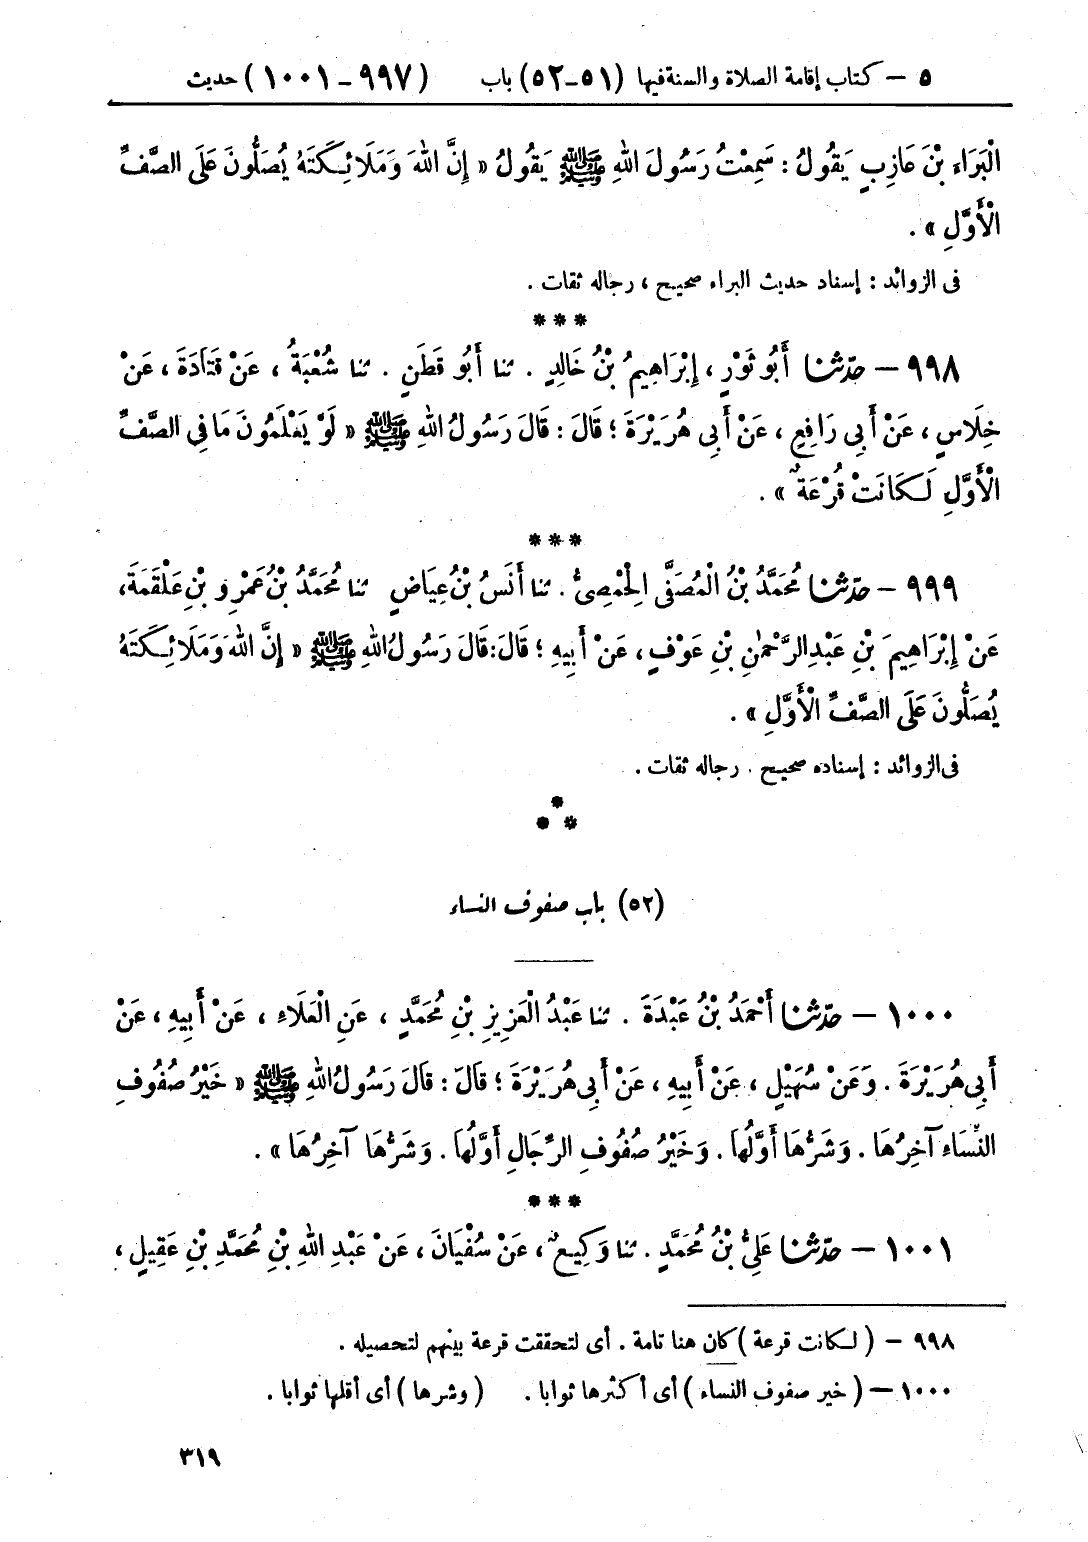 ٥ – كتاب إقامة الصلاة والسنة فيها (٥١-٥٢) باب (٩٩٧ - ١٠٠١) حديث
الْبَرَاءَ بْنَ عَازِبٍ يَقُولُ : سَمِعْتُ رَسُولَ اللهِ ﷺ يَقُولُ « إِنَّ اللهَ وَمَلَائِكَتَهُ يُصَلُّونَ عَلَى الصَّفِّ
الْأَوَّلِ » .
فى الزوائد : إسناد حديث البراء صحيح ، رجاله ثقات .
***
٩٩٨ – حدّثنا أَبُو ثَوْرٍ ، إِبْرَاهِيمُ بْنُ خَالِدٍ . ثنا أَبُو قَطَنٍ . ثنا شُعْبَةُ ، عَنْ قَتَادَةَ ، عَنْ
خِلَاسٍ ، عَنْ أَبِى رَافِعٍ ، عَنْ أَبِى هُرَيْرَةَ ؛ قَالَ : قَالَ رَسُولُ اللهِ ﷺ « لَوْ يَعْلَمُونَ مَا فِى الصَّفِّ
الْأَوَّلِ لَكَانَتْ قُرْعَةٌ » .
***
٩٩٩ – حدّثنا مُحَمَّدُ بْنُ الْمُصَفَّى الْحِمْصِىُّ . ثنا أَنَسُ بْنُ عِيَاضٍ ثنا مُحَمَّدُ بْنُ عَمْرِو بْنِ عَلْقَمَةَ ،
عَنْ إِبْرَاهِيمَ بْنِ عَبْدِ الرَّحْمٰنِ بْنِ عَوْفٍ ، عَنْ أَبِيهِ ؛ قَالَ : قَالَ رَسُولُ اللهِ ﷺ « إِنَّ اللهَ وَمَلَائِكَتَهُ
يُصَلُّونَ عَلَى الصَّفِّ الْأَوَّلِ » .
فى الزوائد : إسناده صحيح . رجاله ثقات .
*
* *
(٥٢) باب صفوف النساء
١٠٠٠ – حدّثنا أَحْمَدُ بْنُ عَبْدَةَ . ثنا عَبْدُ الْعَزِيزِ بْنِ مُحَمَّدٍ ، عَنِ الْعَلَاءِ ، عَنْ أَبِيهِ ، عَنْ
أَبِى هُرَيْرَةَ . وَعَنْ سُهَيْلٍ ، عَنْ أَبِيهِ ، عَنْ أَبِى هُرَيْرَةَ ؛ قَالَ : قَالَ رَسُولُ اللهِ ﷺ « خَيْرُ صُفُوفِ
النِّسَاءِ آخِرُهَا . وَشَرُّهَا أَوَّلُهَا . وَخَيْرُ صُفُوفِ الرِّجَالِ أَوَّلُهَا . وَشَرُّهَا آخِرُهَا » .
***
١٠٠١ – حدّثنا عَلِىُّ بْنُ مُحَمَّدٍ . ثنا وَكِيعٌ ، عَنْ سُفْيَانَ ، عَنْ عَبْدِ اللهِ بْنِ مُحَمَّدِ بْنِ عَقِيلٍ ،
٩٩٨ – ( لكانت قرعة ) كان هنا تامة . أى لتحققت قرعة بينهم لتحصيله .
١٠٠٠ – ( خير صفوف النساء ) أى أكثرها ثوابا . ( وشرها ) أى أقلها ثوابا .
٣١٩